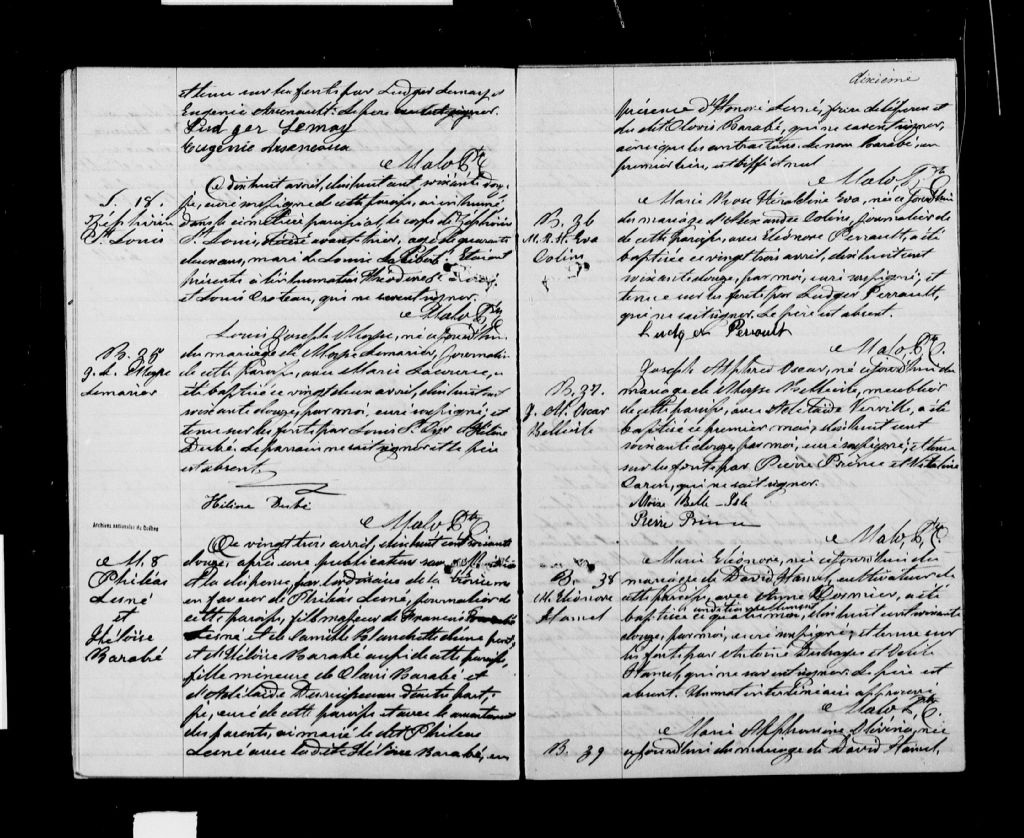 et tenu sur les fonts par Ludger Lemay et
Eugénie Arsenault. Le père
Ludger Lemay
Eugénie Arseneaux
Malo Ptre C
S. 18.
Zéphirin
St. Louis
Ce dix huit avril, dix huit cent soixante dou-
ze, curé soussigné de cette paroisse, ai inhumé
dans le cimetière paroissial le corps de Zéphirin
St. Louis, décédé avant hier, agé de quarante
deux ans, mari de Louise Laliberté. Etaient
présents à l'inhumation Théodore
et Louis Croteau, qui ne savent signer.
Malo Ptre
B. 35
J. L. Moyse
Lemarier
Louis Joseph Moyse, né aujourd'hui
du mariage de Moyse Lemarier, journalier
de cette paroisse, avec Marie
été baptisé ce vingt deux avril, dix huit cent
soixante douze, par moi, curé soussigné, et
tenu sur les fonts par Louis St. Cyr et Hélène
Dubé. Le parrain ne sait signer et le père
est absent.
Hélène Dubé
Malo Ptre C
Archives nationales du Québec
M. 8
Philéas
Lesné
et
Héloïse
Barabé
Ce vingt trois avril, dix huit cent soixante
douze, après une publication
et la dispense par l'ordinaire de la
en faveur de Philéas Lesné, journalier de
cette paroisse, fils majeur de François
Lesné et de Camille Blanchette d'une part,
et d'Héloïse Barabé aussi de cette paroisse,
fille mineure de Clovis Barabé et
d'Adélaïde d'autre part,
je, curé de cette paroisse et avec le consentement
des parents, ai marié le dit Philéas
Lesné avec la dite Héloïse Barabé, en
dixième
présence d'Honoré Lesné, frère de l'époux et
du dit Clovis Barabé, qui ne savent signer,
ainsi que les contractants. Le nom Barabé, en
premier lieu, est biffé et nul
Malo Ptre C
B. 36
M. R. H. Eva
Colin
Marie Rose Héraldine Eva, née aujourd'hui
du mariage d'Alexandre Colin, journalier de
de cette paroisse, avec Eléonore Perrault, a été
baptisée ce vingt trois avril, dix huit cent
soixante douze, par moi, curé soussigné, et
tenue sur les fonts par Ludger Perrault,
qui ne sait signer. Le père est absent.
Ludger Perrault
Malo, Ptre C.
B. 37.
J. Al. Oscar
Belleisle
Joseph Alphred Oscar, né aujourd'hui du
mariage de Moyse Belleisle, meublier
de cette paroisse, avec Adélaïde Verville, a été
baptisé ce premier mai, dix huit cent
soixante douze, par moi, curé soussigné, et tenu
sur les fonts par Pierre Prince et
Caron, qui ne sait signer.
Moïse Belle-Isle
Pierre Prince
Malo, Ptre C
B. 38
M. Eléonore
Hamel
Marie Eléonore, née aujourd'hui du
mariage de David Hamel, cultivateur de
cette paroisse, avec Anne Cormier, a été
conditionnellement
baptisée ce quatre mai, dix huit cent soixante
douze, par moi, curé soussigné, et tenue sur
les fonts par Antoine et Odile
Hamel, qui ne savent signer. Le père est
absent. Un mot interlinéaire approuvé
Malo Ptre C.
B. 39
Marie Alphonsine Olivina, née
aujourd'hui du mariage de David Hamel,